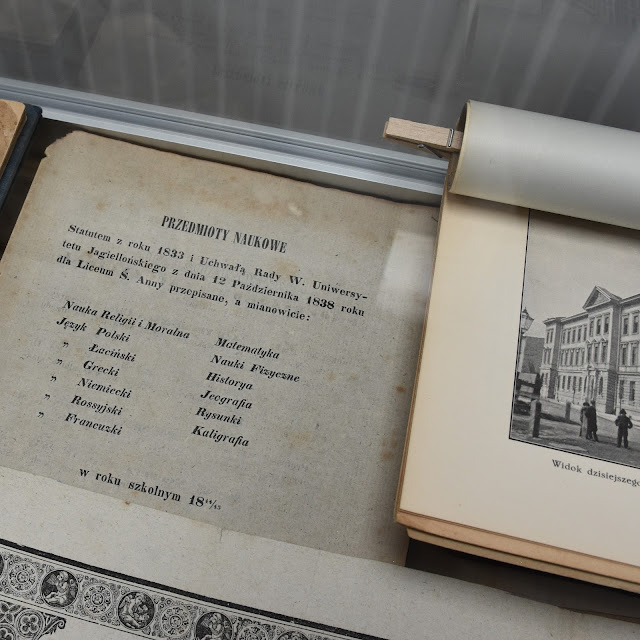 PRZEDMIOTY NAUKOWE
Statutem z roku 1833 i Uchwałą Rady W. Uniwersy-
tetu Jagiellońskiego z dnia 12 Października 1838 roku
dla Liceum Ś. Anny przepisane, a mianowicie:
Nauka Religii i Moralna
Język Polski
„ Łaciński
„ Grecki
„ Niemiecki
„ Rossyjski
„ Francuzki
Matematyka
Nauki Fizyczne
Historya
Jeografia
Rysunki
Kaligrafia
w roku szkolnym 18
Widok dzisiejszego